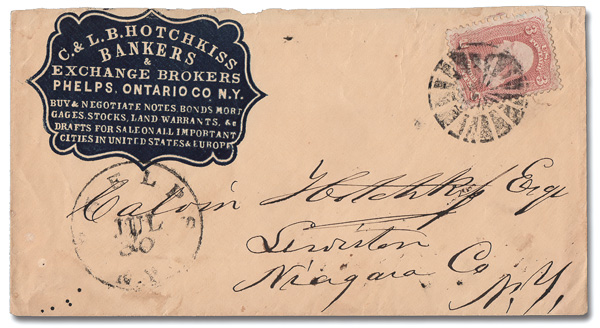 C. & L. B. HOTCHKISS
BANKERS
&
EXCHANGE BROKERS
PHELPS, ONTARIO CO. N.Y.
BUY & NEGOTIATE NOTES, BONDS MORT
GAGES, STOCKS, LAND WARRANTS, &c
DRAFTS FOR SALE ON ALL IMPORTANT
CITIES IN UNITED STATES & EUROPE
3
3
PHELPS
JUL
30
N.Y.
Calvin Hotchkiss Esqr
Lewiston
Niagara Co
N.Y.